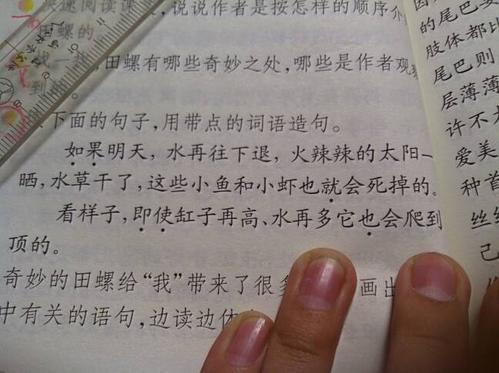 快速阅读课 ，说说作者是按怎样的顺序介
田螺的。
找一找，田螺有哪些奇妙之处，哪些是作者观察
到
下面的句子，用带点的词语造句。
如果明天，水再往下退，火辣辣的太阳一
晒，水草干了，这些小鱼和小虾也就会死掉的。
看样子，即使缸子再高、水再多它也会爬到
顶的。
奇妙的田螺给“我”带来了很多 画出
中有关的语句，边读边体
的尾巴
肢体都
尾巴则
层薄薄
许不
爱美
种首
丝
己